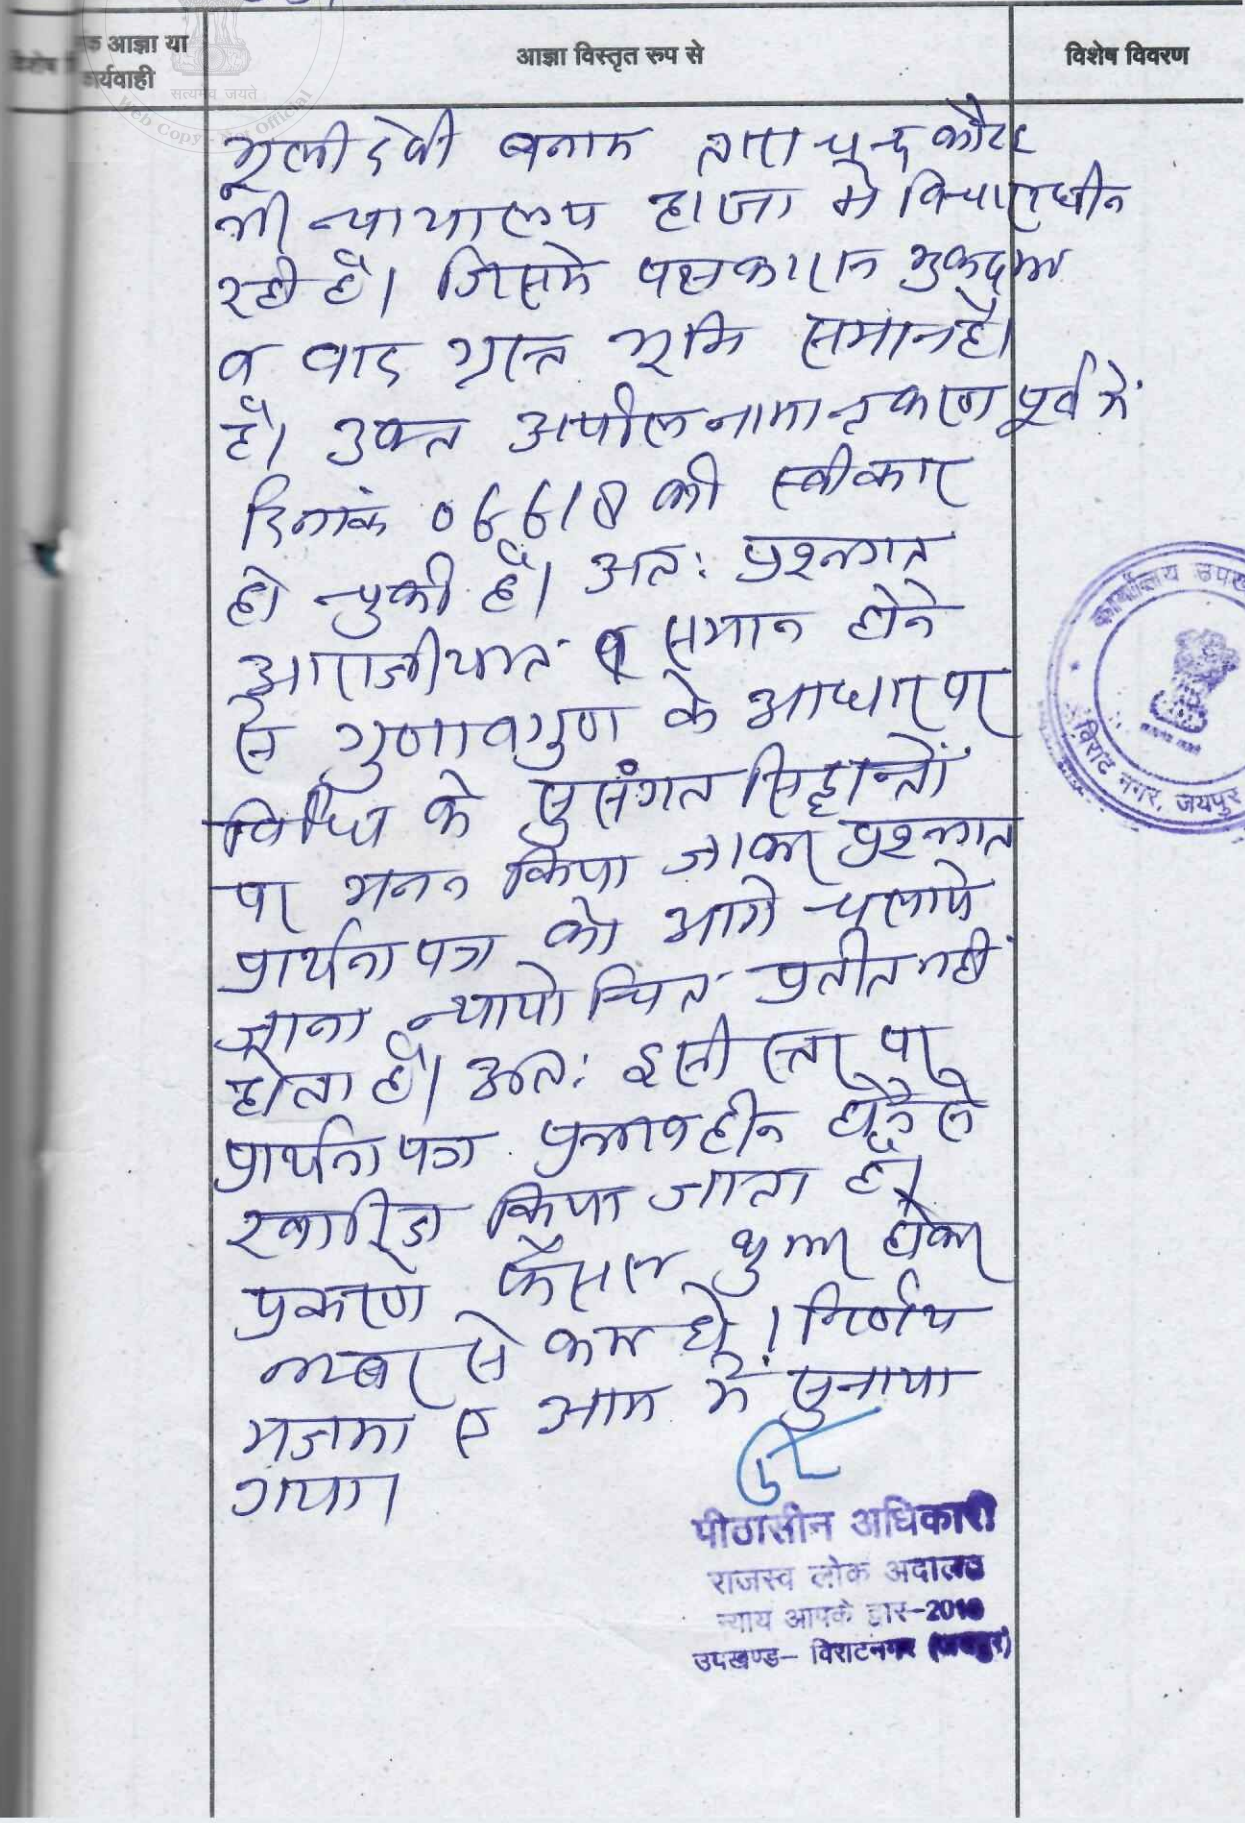 आज्ञा या
कार्यवाही
आज्ञा विस्तृत रुप से
विशेष विवरण
सत्यमेव जयते
Web Copy - Not Official
मूली देवी बनाम ताराचन्द
भी न्यायालय हाजा मे विचाराधीन
रही है। जिसमे पक्षकारान मुकदमा
व वाद ग्रस्त भूमि समान है।
है। उक्त अपील नामान्तकरण पूर्व में
दिनांक 06 6 18 को स्वीकार
हो चुकी है। अत: प्रश्नगत
आराजीयात व समान होने
से गुणावगुण के आधार पर
विधि के सुसंगत सिद्दान्तों
पर मनन किया जाकर प्रश्नगत
प्रार्थना पत्र को आगे चलाये
जाना न्यायोचित प्रतीत नहीं
होता है। अत: इसी स्तर पर
प्रार्थना पत्र प्रभावहीन होने से
खारिज किया जाता है।
प्रकरण फैसल शुमार होकर
नम्बर से कम हो। निर्णय
मजमा ए आम में सुनाया
गया।
कार्यालय उपख
विराट नगर, जयपुर
पीठासीन अधिकारी
राजस्व लोक अदालत
न्याय आपके द्वार-2018
उपखण्ड- विराटनगर (जयपुर)